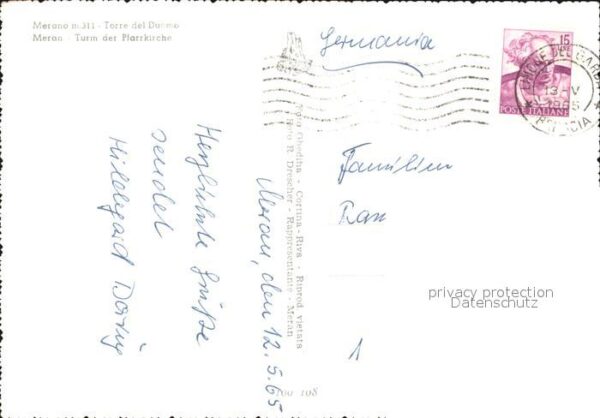 Merano m 311 - Torre del Duomo
Meran - Turm der Pfarrkirche
Germania
15
POSTE ITALIANE
13 V
1965
BRESCIA
Meran, den 12.5.65
Herzlichste Grüße
sendet
Hildegard
Familien
Rau
1
Foto Ghedina - Cortina - Riva - Riprod. vietata
R. Drescher - Rappresentante - Meran
108
privacy protection
Datenschutz